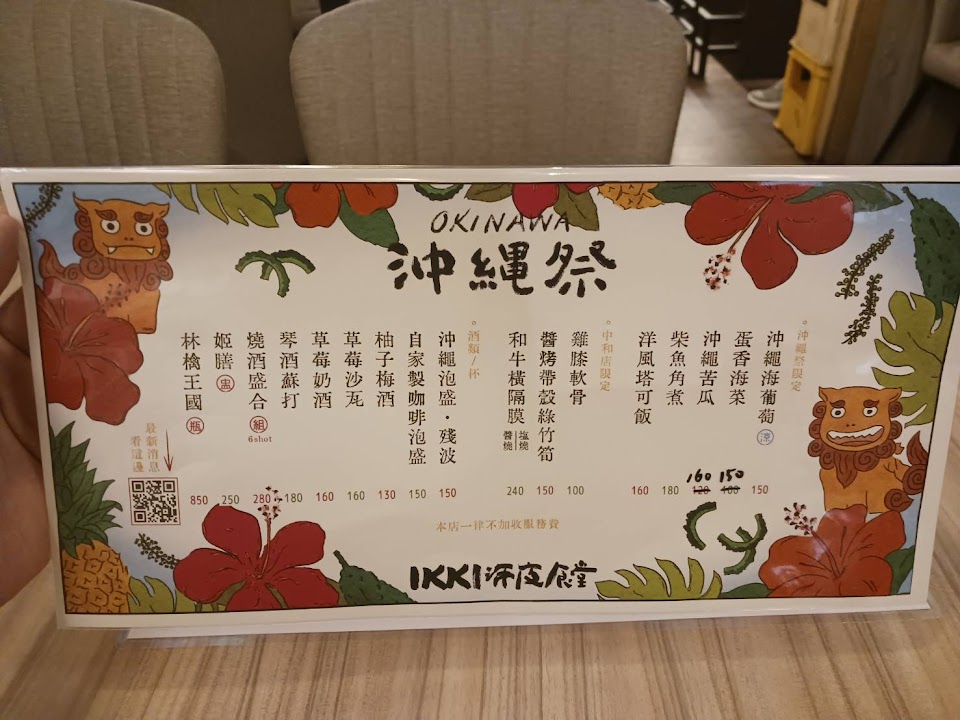 OKINAWA
沖縄祭
。沖繩祭限定
沖繩海葡萄 涼 150
蛋香海菜 100 150
沖繩苦瓜 120 160
柴魚角煮 180
洋風塔可飯 160
。中和店限定
雞膝軟骨 100
醬烤帶殼綠竹筍 150
和牛橫隔膜 塩燒|醬燒 240
。酒類/杯
沖繩泡盛・殘波 150
自家製咖啡泡盛 150
柚子梅酒 130
草莓沙瓦 160
草莓奶酒 160
琴酒蘇打 180
燒酒盛合 組 6shot 280
姬膳 盅 250
林檎王國 瓶 850
最新消息
看這邊
本店一律不加收服務費
IKKI深夜食堂